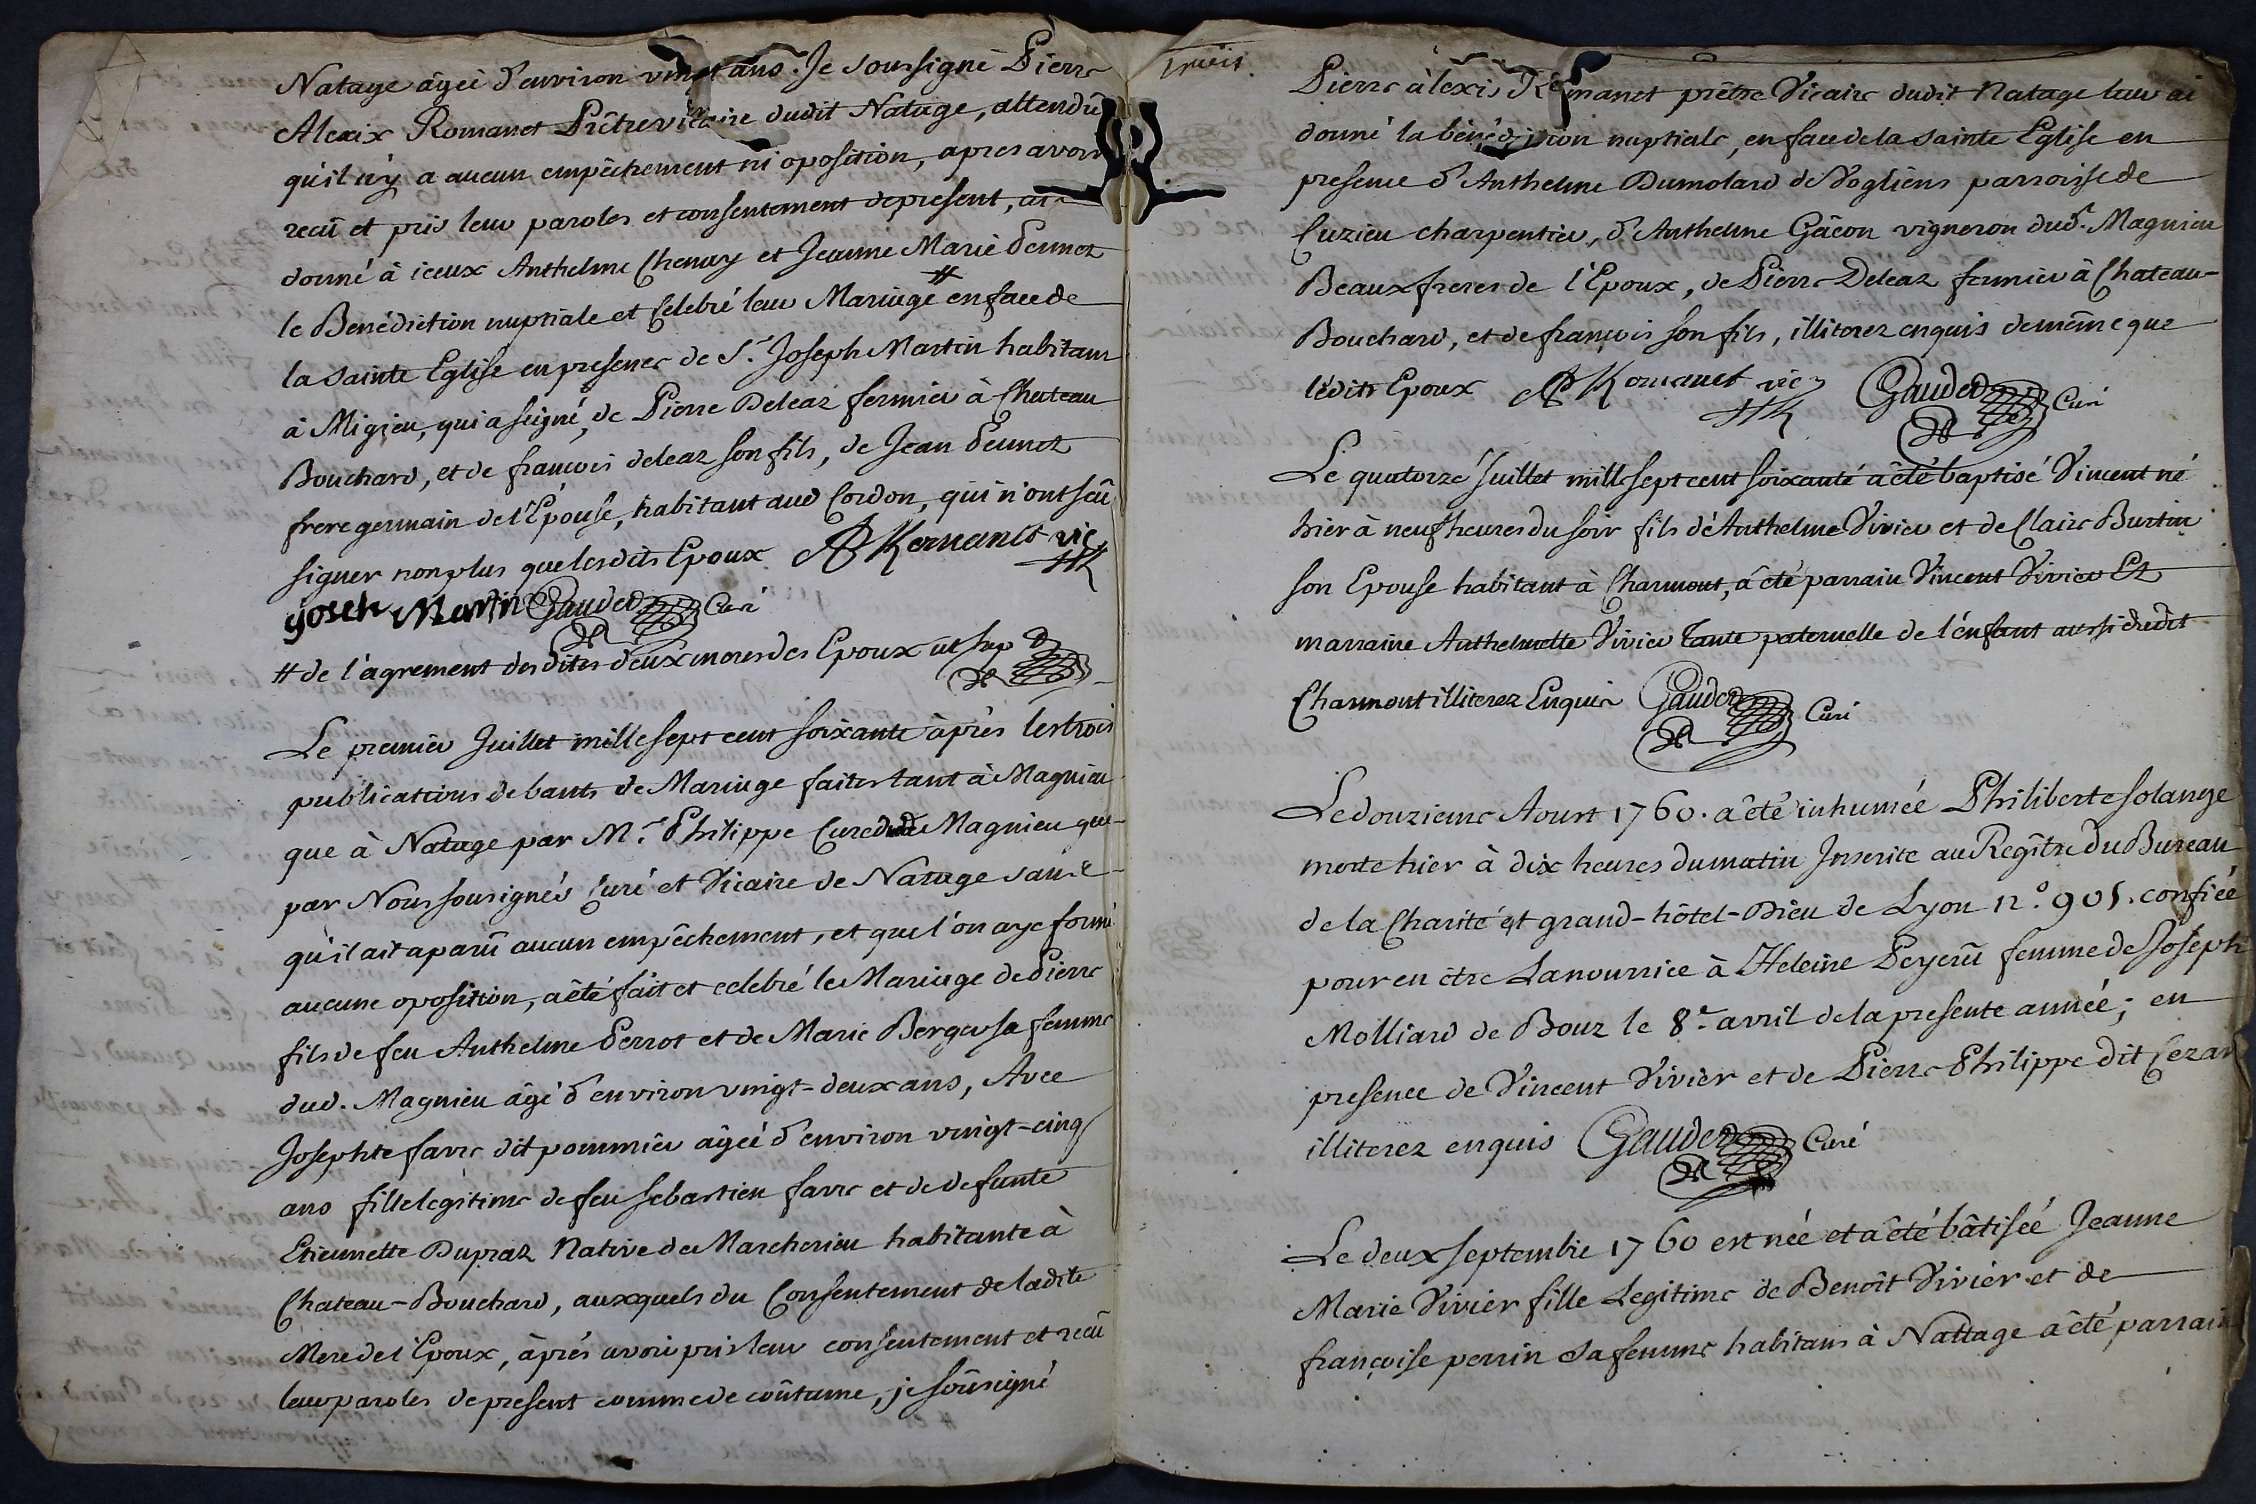 Natage âgeé d'environ vingt ans. Je soussigné Pierre
Alexix Romanet Prêtre vicaire dudit Natage, attendû
qu'il n'y a aucun empêchement ni oposition, apres avoir
recû et priś leur paroles et consentement de present, ai
donné à iceux Anthelme Chenuy et Jeanne Marie Peunet
le Benédiction nuptiale et Celebré leur Mariage # en face de
la sainte Eglise en presence de Sr. Joseph Martin habitant
à Migieu, qui a signé, de Pierre Deleaz fermier à Chateau
Bouchard, et de françois deleaz son fils, de Jean Peunet
frere germain de l'Épouse, habitant aud Cordon, qui n'ont sçû
signer non plus que lesdits Epoux AP Romanet vic
josehc Martin Gaudet Curé
# de l'agrement desdites deux meres des Epoux ut sup
Le premier Juillet mille sept cent soixante après les trois
publications de bants de Mariage faites tant à Magnieu
que à Natage par Mr. Philippe Curé dud Magnieu que
par Nous sousignés Curé et Vicaire de Natage sans
qu'il ait aparû aucun empêchement, et que l'on aye formé
aucune oposition, a été fait et celebré le Mariage de Pierre
fils de feu Anthelme Perrot et de Marie Berger sa femme
dud. Magnieu âgé d'environ vingt-deux ans, Avec
Josephte favre dit pommier âgeé d'environ vingt-cinq
ans fille legitime de feu sebastien favre et de defunte
Etiennette Dupraz Native de Marcherieu habitante à
Chateau-Bouchard, auxquels du Consentement de ladite
Mere de l'Epoux, après avoir pris leur consentement et recû
leur paroles de present comme de coûtume, je soûsigné
Pierre àlexis Romanet prêtre Vicaire dudit Natage leur ai
donné la bénédiction nuptiale, en face de la sainte Eglise en
presence d'Anthelme Dumolard de Vogliens parroisse de
Cuzieu charpentier, d'Anthelme Gâcon vigneron dud. Magnieu
Beaux freres de l'Epoux, de Pierre Deleaz fermier à Chateau-
Bouchard, et de françois son fils, illiterez enquis de même que
lédits Epoux AP Romanet vic Gaudet Curé
Le quatorzé Juillet mill sept cent soixante a été baptisé Vincent né
hier à neuf heures du soir fils d'Anthelme Vivier et de Claire Burtin
son Epouse habitant à Charmont, a été parrain Vincent Vivier Et
marraine Anthelmette Vivier Tante paternelle de l'enfant aussi dudit
Charmont illiterez Enquis Gaudet Curé
Le douzieme Aoust 1760. a été inhumée Philiberte solange
morte hier à dix heures du matin Inscrite au Regître du Bureau
de la Charité et grand-hôtel-Dieu de Lyon n.º 901. confiée
pour en être La nourrice à Heleine Peyerû femme de Joseph
Molliard de Bouz le 8e. avril de la presente année; en
presence de Vincent Vivier et de Pierre Philippe dit Cezar
illiterez enquis Gaudet Curé
Le deux septembre 1760 est née et a été bâtiséé Jeanne
Marie Vivier fille Legitime de Benoît Vivier et de
françoise perrin sa femme habitans à Nattage a été parrain